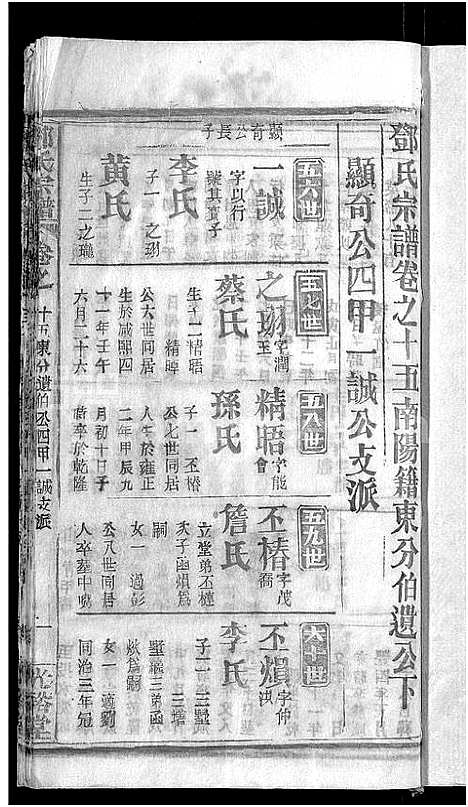 鄧氏宗譜卷之十五南陽籍東分伯遺公下
顯奇公四甲一誠公支派
顯奇公長子
五六世
一誠
字以行
李氏
子一 之珝
黃氏
生子二之瓏
五七世
之珝
字潤
玉
蔡氏
生子二精晤
精暐
公六世同居
生於咸熙四
十一年壬午
六月二十六
五八世
精晤
字能
會
孫氏
子一 丕椿
公七世同居
人生於雍正
二年甲辰九
月初十日子
時卒於乾隆
五九世
丕椿
字茂
喬
詹氏
立堂弟丕槤
次子函熉為
嗣
女一 適彭
公八世同居
人卒葬中曉
六十世
丕熉
字仲
洪
李氏
子二 三墅
三墡
墅繼三弟函
炊為嗣
女一 適劉
同治三年冠
鄧氏宗譜
卷之
十五東分遺伯公四甲一誠支派
一